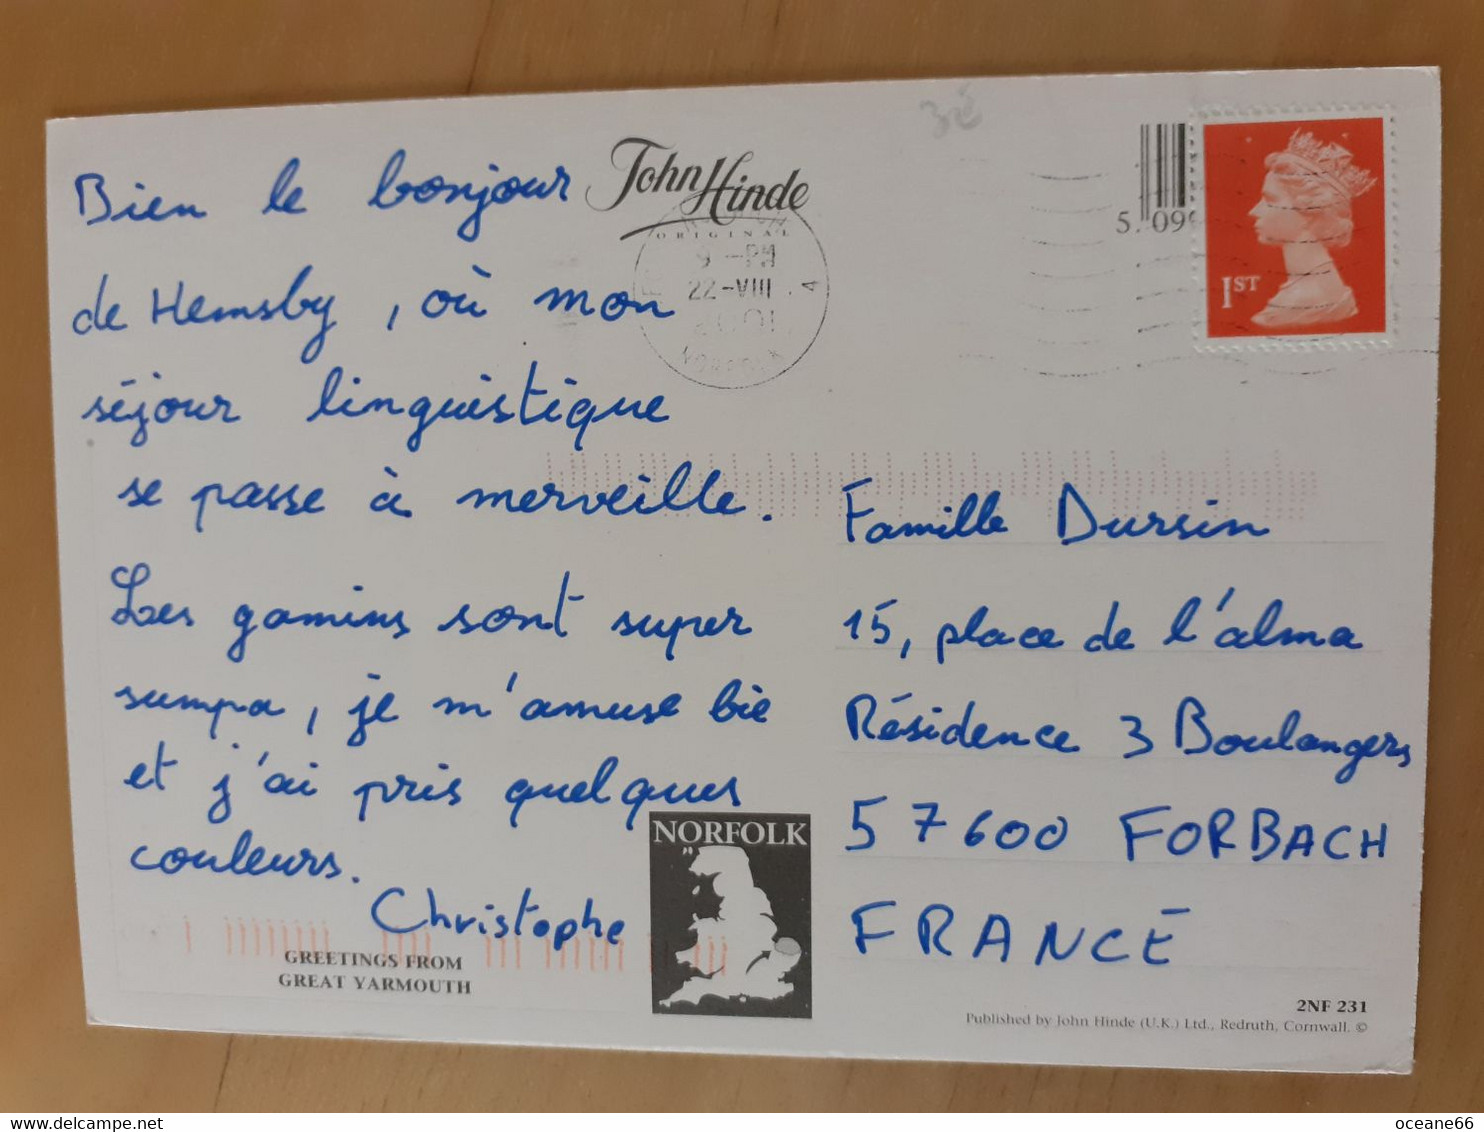 Bien le bonjour
de Hemsby, où mon
séjour linguistique
se passe à merveille.
Les gamins sont super
sumpa, je m'amuse bie
et j'ai pris quelques
couleurs.
Christophe
John Hinde
ORIGINAL
9 -PM
22-VIII
2001
4
NORFOLK
3€
5 099
1ST
Famille Dursin
15, place de l'alma
Résidence 3 Boulangers
57600 FORBACH
FRANCE
NORFOLK
GREETINGS FROM
GREAT YARMOUTH
2NF 231
Published by John Hinde (U.K.) Ltd., Redruth, Cornwall. ©
oceane66